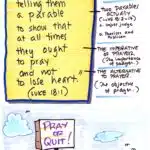 telling them
a parable
to show that
at all times
they ought
to pray
and not
to lose heart."
(LUKE 18:1)
TWO PARABLES
ACTUALLY
(LUKE 18:2-17)
Pharisee and
THE IMPERATIVE OF
PRAYER.
(The importance
of prayer.)
THE ALTERNATIVE TO
PRAYER
(The objective
of prayer.)
PRAY
OR
QUIT!